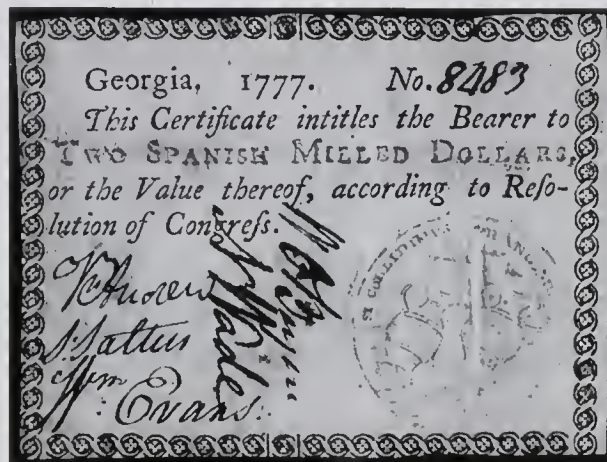 Georgia, 1777. No. 8483
This Certificate intitles the Bearer to
TWO SPANISH MILLED DOLLARS,
or the Value thereof, according to Reſo-
lution of Congreſs.
Wade
Wm Evans.